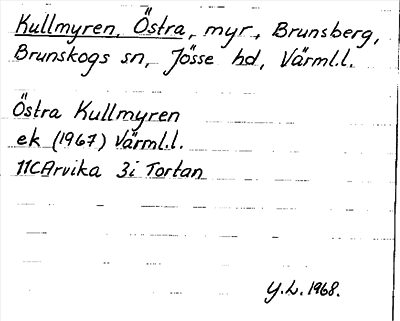 Kullmyren, Östra, myr, Brunsberg,
Brunskogs sn, Jösse hd, Värml.l.
Östra Kullmyren
ek (1967) Värml.l.
11CArvika 3i Tortan
Y.L. 1968.